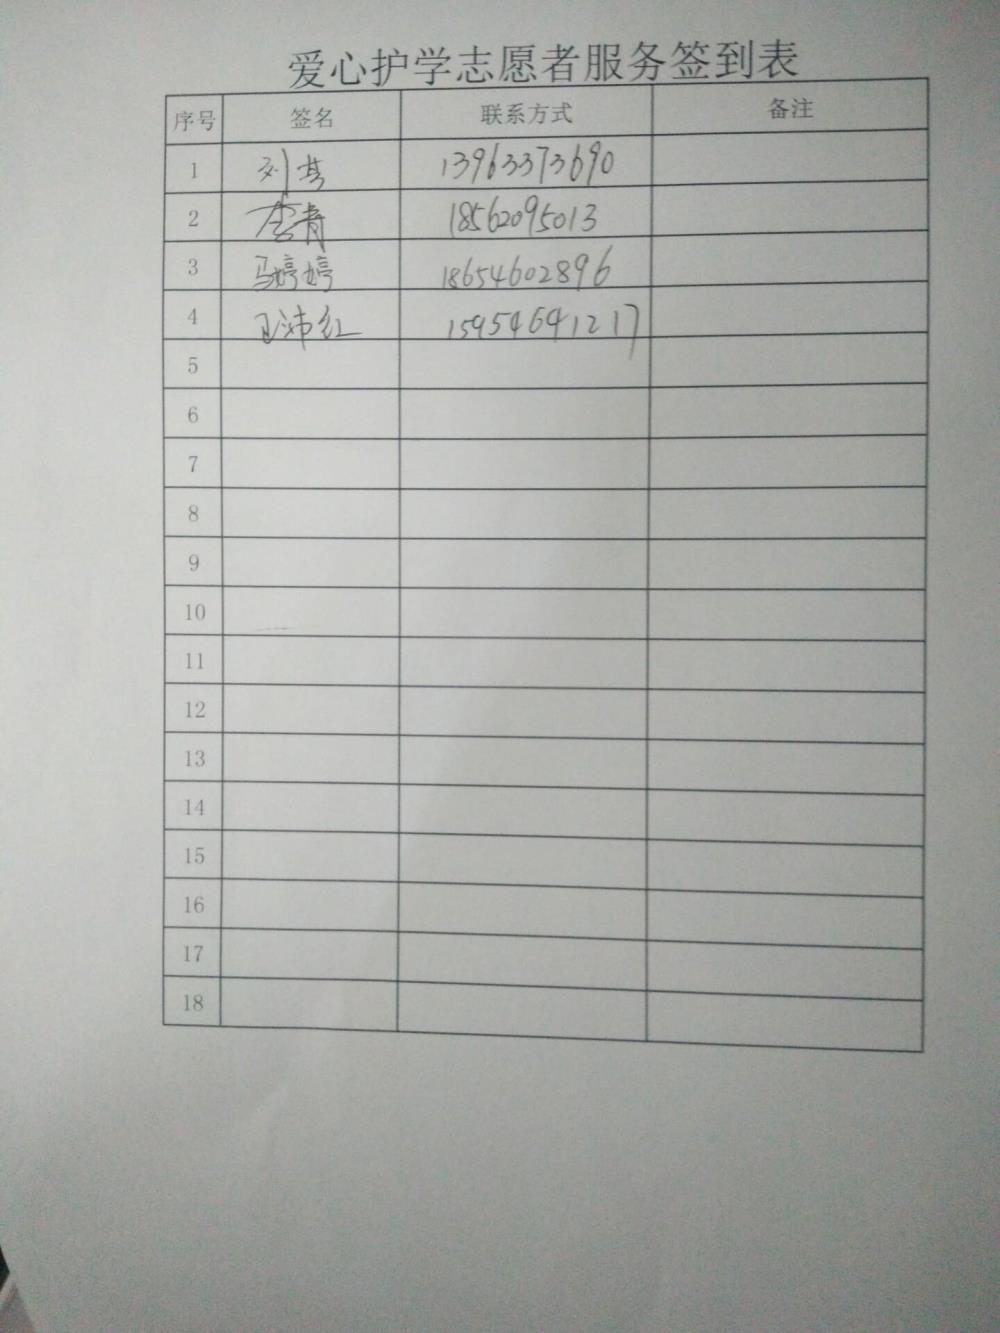 爱心护学志愿者服务签到表
序号 签名 联系方式 备注
1 刘 13963373690
2 李青 18562095013
3 马婷婷 18654602896
4 王沛红 15954641217
5
6
7
8
9
10
11
12
13
14
15
16
17
18